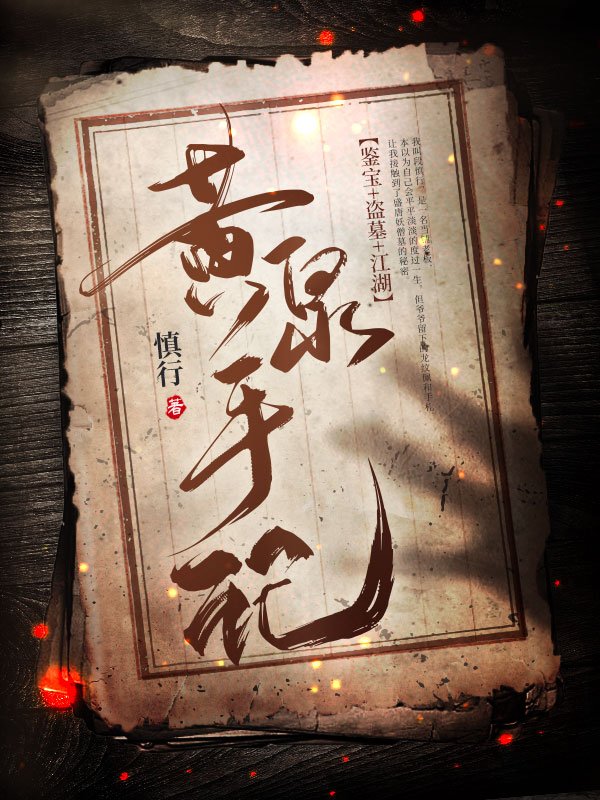 黄泉手记
慎行
著
【鉴宝+盗墓+江湖】
我叫段慎行,是一名当铺老板,
本以为自己会平平淡淡的度过一生。但爷爷留下的龙纹佩和手札
让我接触到了盛唐妖僧墓的秘密。